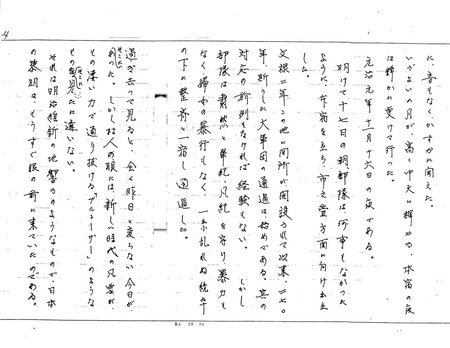 に、音もなくいずかに聞えた。
いざよいの月が高く中天に輝やき、本宿の夜は静かに更けて行った。
元治元年十一月十六日の夜である。
明けて十七日の朝部隊は何事もなかったように、本宿を立ち、市之萱方面に向け出立した。
文禄二年この地に関所が開設されて以来、二七〇年、斯うした大軍団の通過は始めてある。其の対応の前例もなければ経験もない。しかし部隊は粛然と軍紀凡紀を守り暴力もなく婦女の暴行もなく、一糸乱れぬ統卒の下に整斉と一宿し通過した。
過ぎ去って見ると、全く昨日と変らない今日が有った。しかし村人の眼は、新しい時代の凡雲が、もの凄い力で通り抜ける「ブルドーザー」のようなものを見たに違いない。
それは明治維新の地響きのようなもので、日本の黎明は、もうすぐ眼の前に来ていたのである。
B4 20-20
4